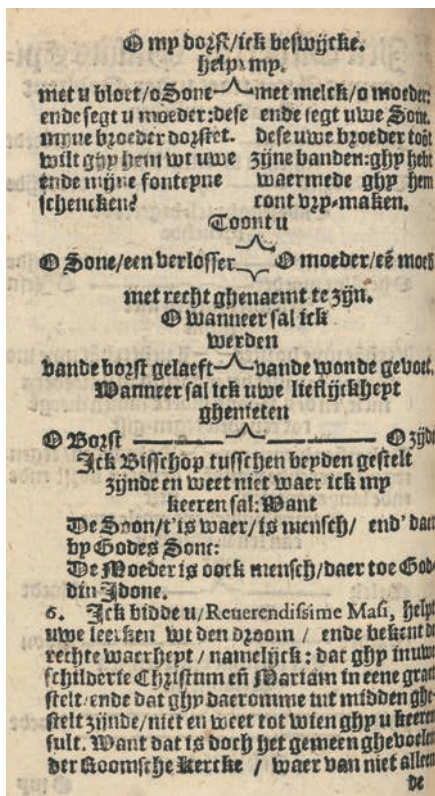 O my dorst/ick beswijcke.
help my.
met u bloet/o Sone met melck/o moeder:
ende segt u moeder: dese ende segt uwe Sone.
myne broeder dorstet. dese uwe broeder toōt
wilt ghy hem wt uwe zijne banden: ghy hebt
ende mijne fonteyne waermede ghy hem
schencken? cont vry-maken.
Toont u
O Sone/een verlosser O moeder/eē moed
met recht ghenaemt te zijn.
O wanneer sal ick
werden
vande borst gelaeft vande wonde gevoet.
Wanneer sal ick uwe lieflijckheyt
ghenieten
O Borst O zijd
Ick Bisschop tusschen beyden gestelt
zijnde en weet niet waer ick my
keeren sal: Want
De Soon/t'is waer/is mensch/ end' daer
by Godes Sone:
De Moeder is oock mensch/daer toe God-
din Idone.
6. Ick bidde u/Reuerendissime Masi, helpt
uwe leerken wt den droom / ende bekent de
rechte waerheyt / namelijck: dat ghy in uwe
schilderie Christum eñ Mariam in eene graet
stelt/ende dat ghy daeromme int midden ghe-
stelt zijnde/niet en weet tot wien ghy u keeren
sult. Want dat is doch het gemeen ghevoelen
der Roomsche Kercke / waer van niet alleen
de